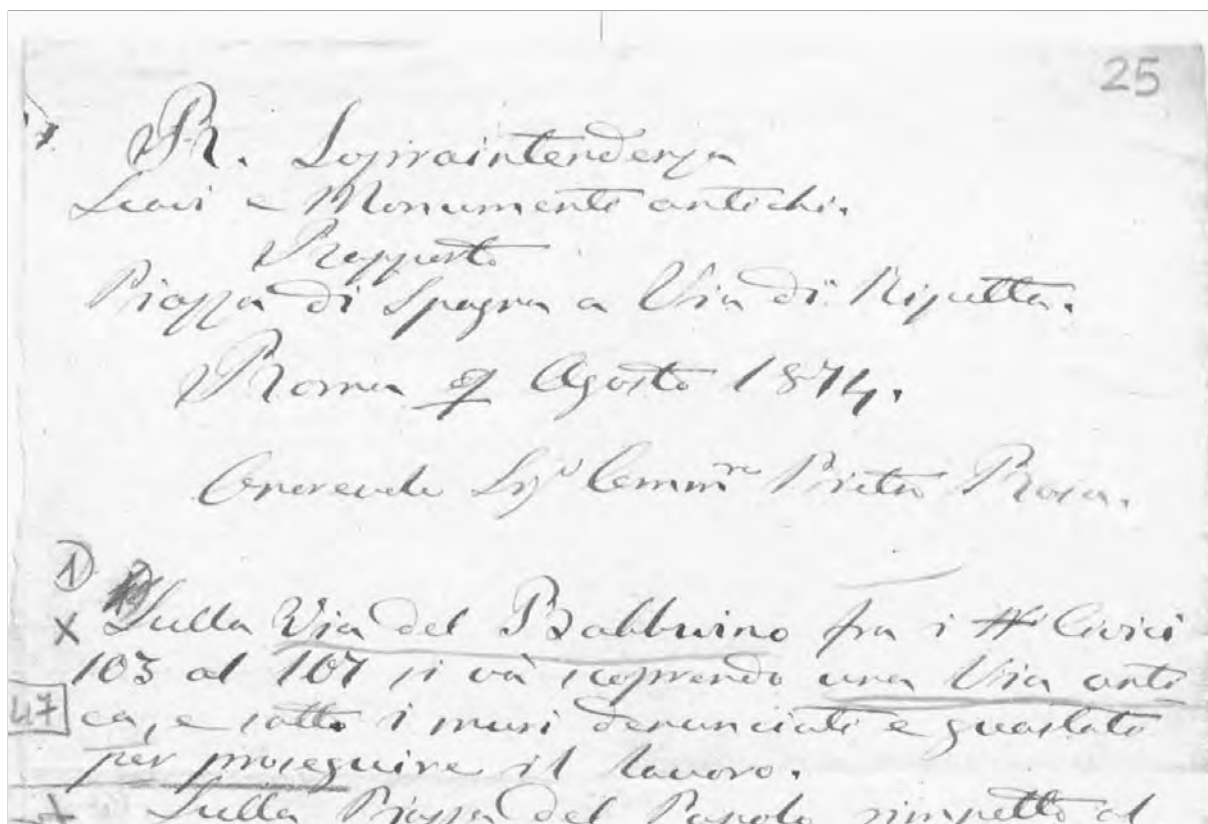 25
R. Sopraintendenza
Scavi e Monumenti antichi.
Rapporto
Piazza di Spagna a Via di Ripetta.
Roma Agosto 1874.
Onorevole Sigr Commre Pietro Rosa.
1
X Sulla Via del Babbuino fra i Ni Civici
103 al 107 si và scoprendo una Via anti
47 ca, e sotto i muri denunciati e guastata
per proseguire il lavoro.
X Sulla Piazza del Popolo rimpetto al